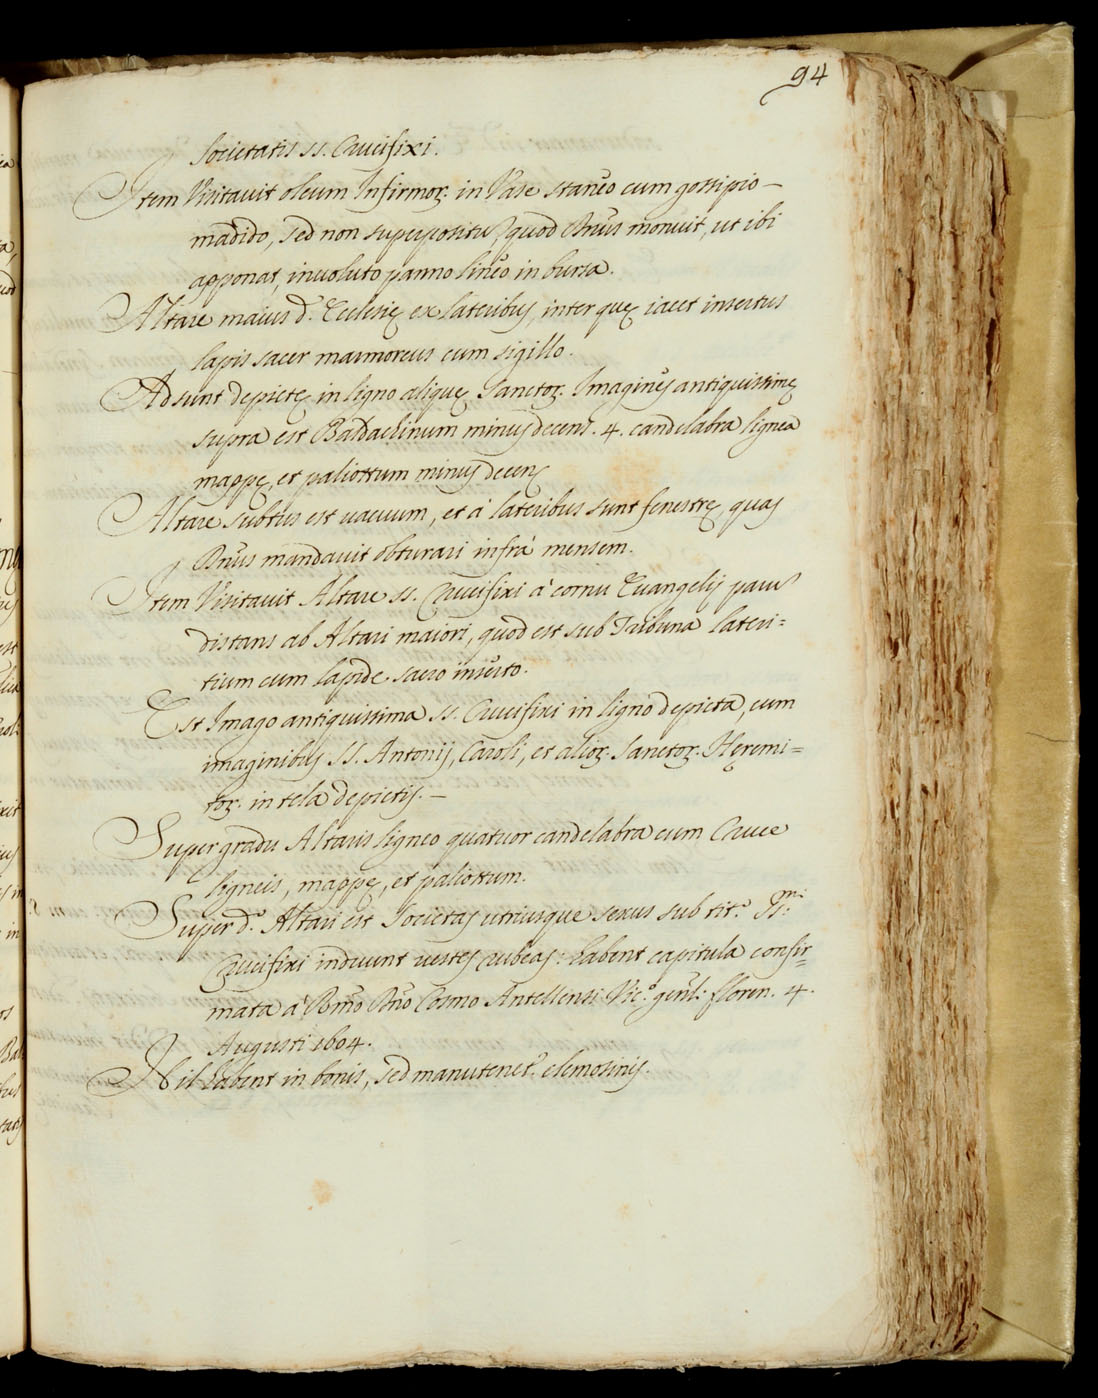 94
Societatis SS. Crucifixi.
Item Visitavit oleum Infirmor. in Vase staneo cum gossipio
madido, sed non superpositu, quod Dnus monuit, ut ibi
apponat, involuto panno lineo in bursa.
Altare maius d. Ecclesię ex lateribus, inter quę iacet insertus
lapis sacer marmoreus cum sigillo.
Adsunt depictę in ligno aliquę Sanctor. Imagines antiquissimę
supra est Baldachinum minus decens. 4. candelabra lignea
mappę, et paliottum minus decens
Altare subtus est vacuum, et à lateribus sunt fenestrę, quas
Dnus mandavit obturari infrà mensem.
Item Visitavit Altare SS. Crucifixi à cornu Evangelij parum
distans ab Altari maiori, quod est sub Tribuna lateri=
tium cum lapide sacro inserto.
Est Imago antiquissima SS. Crucifixi in ligno depicta, cum
imaginibus SS. Antonij, Caroli, et alior. Sanctor. Hęremi=
tor. in tela depictis. —
Super gradu Altaris ligneo quatuor candelabra cum Cruce
ligneis, mappę, et paliottum.
Super d.º Altari est Societas utriusque sexus sub tit.º SSmi
Crucifixi induunt vestes rubeas: habent capitula confir=
mata à Rmo Dno Cosmo Antellensi Vic.º genli: floren. 4.
Augusti 1604.
Nil habent in bonis, sed manutenet.r elemosinis.